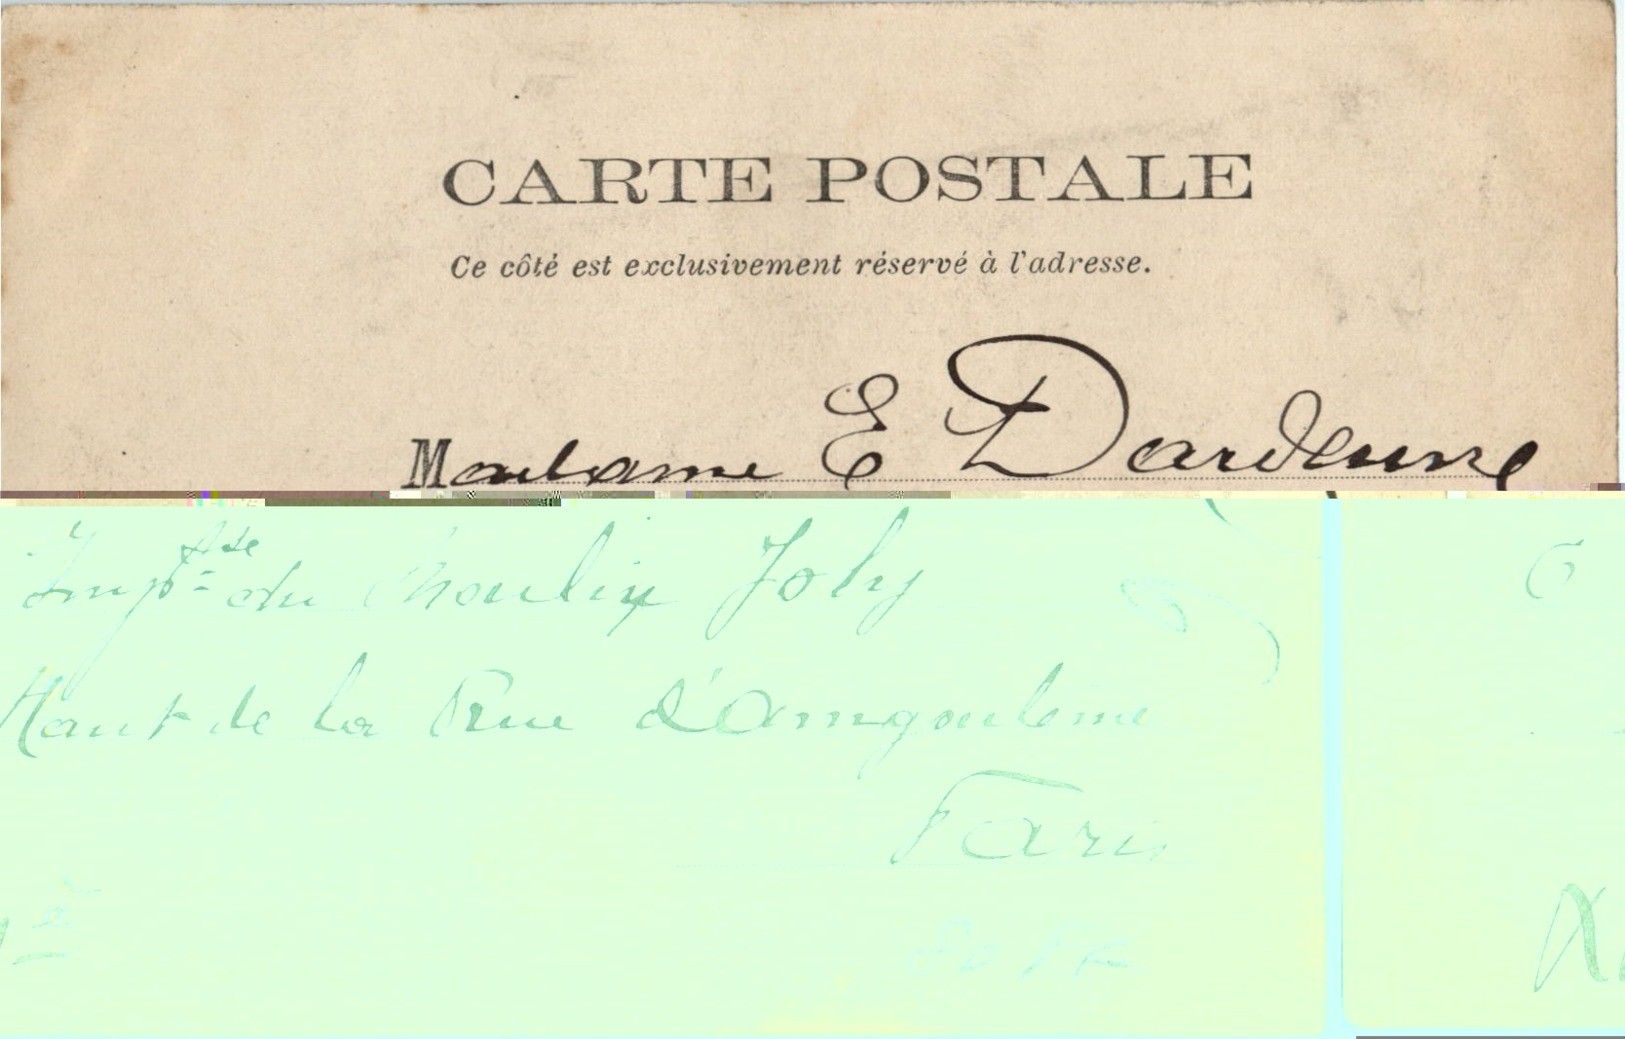 CARTE POSTALE
Ce côté est exclusivement réservé à l'adresse.
Madame E Dardenne
Impsse du Moulin Joly
Haut de la Rue d'Amgouleme
Paris